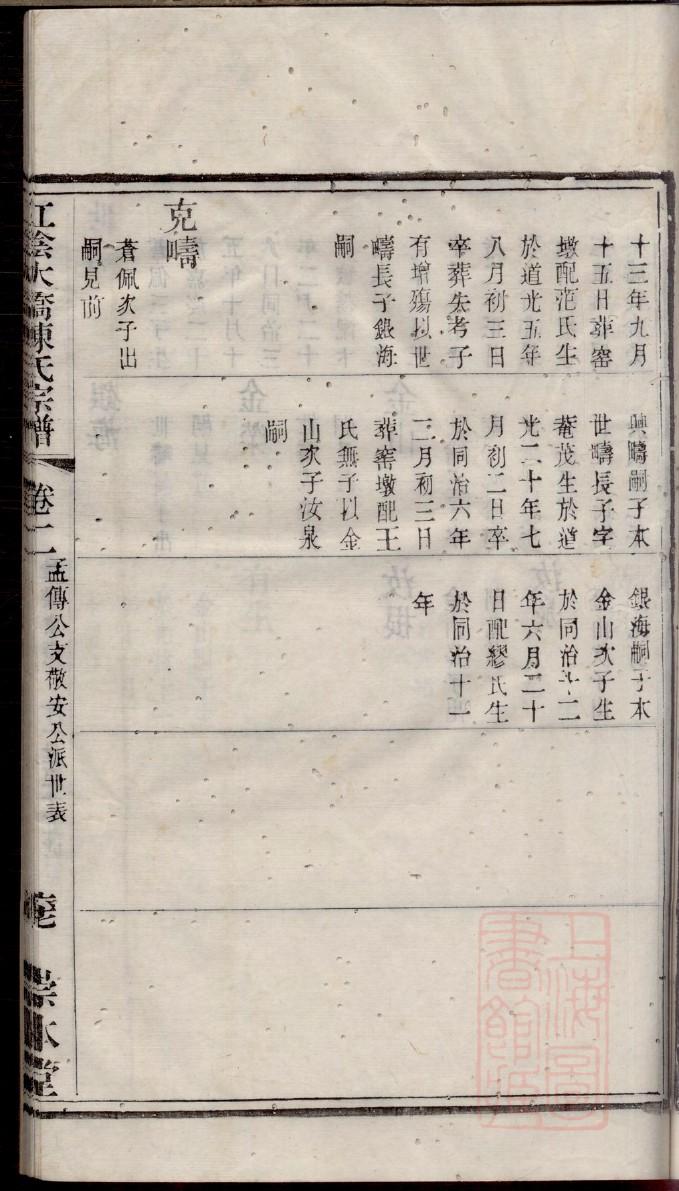 十三年九月
十五日葬窑
墩配范氏生
於道光五年
八月初三日
卒葬失考子
有增殤以世
疇長子銀海
嗣
克疇
蒼佩次子出
嗣見前
興疇嗣子本
世疇長子字
菴茂生於道
光二十年七
月初二日卒
於同治六年
二月初三日
葬窑墩配王
氏無子以金
山次子汝泉
嗣
銀海嗣子本
金山次子生
於同治十二
年六月二十
日配繆氏生
於同治十一
年
江陰大橋陳氏宗譜
卷二
孟傳公支敬安公派世表
崇本堂
上海圖書館藏